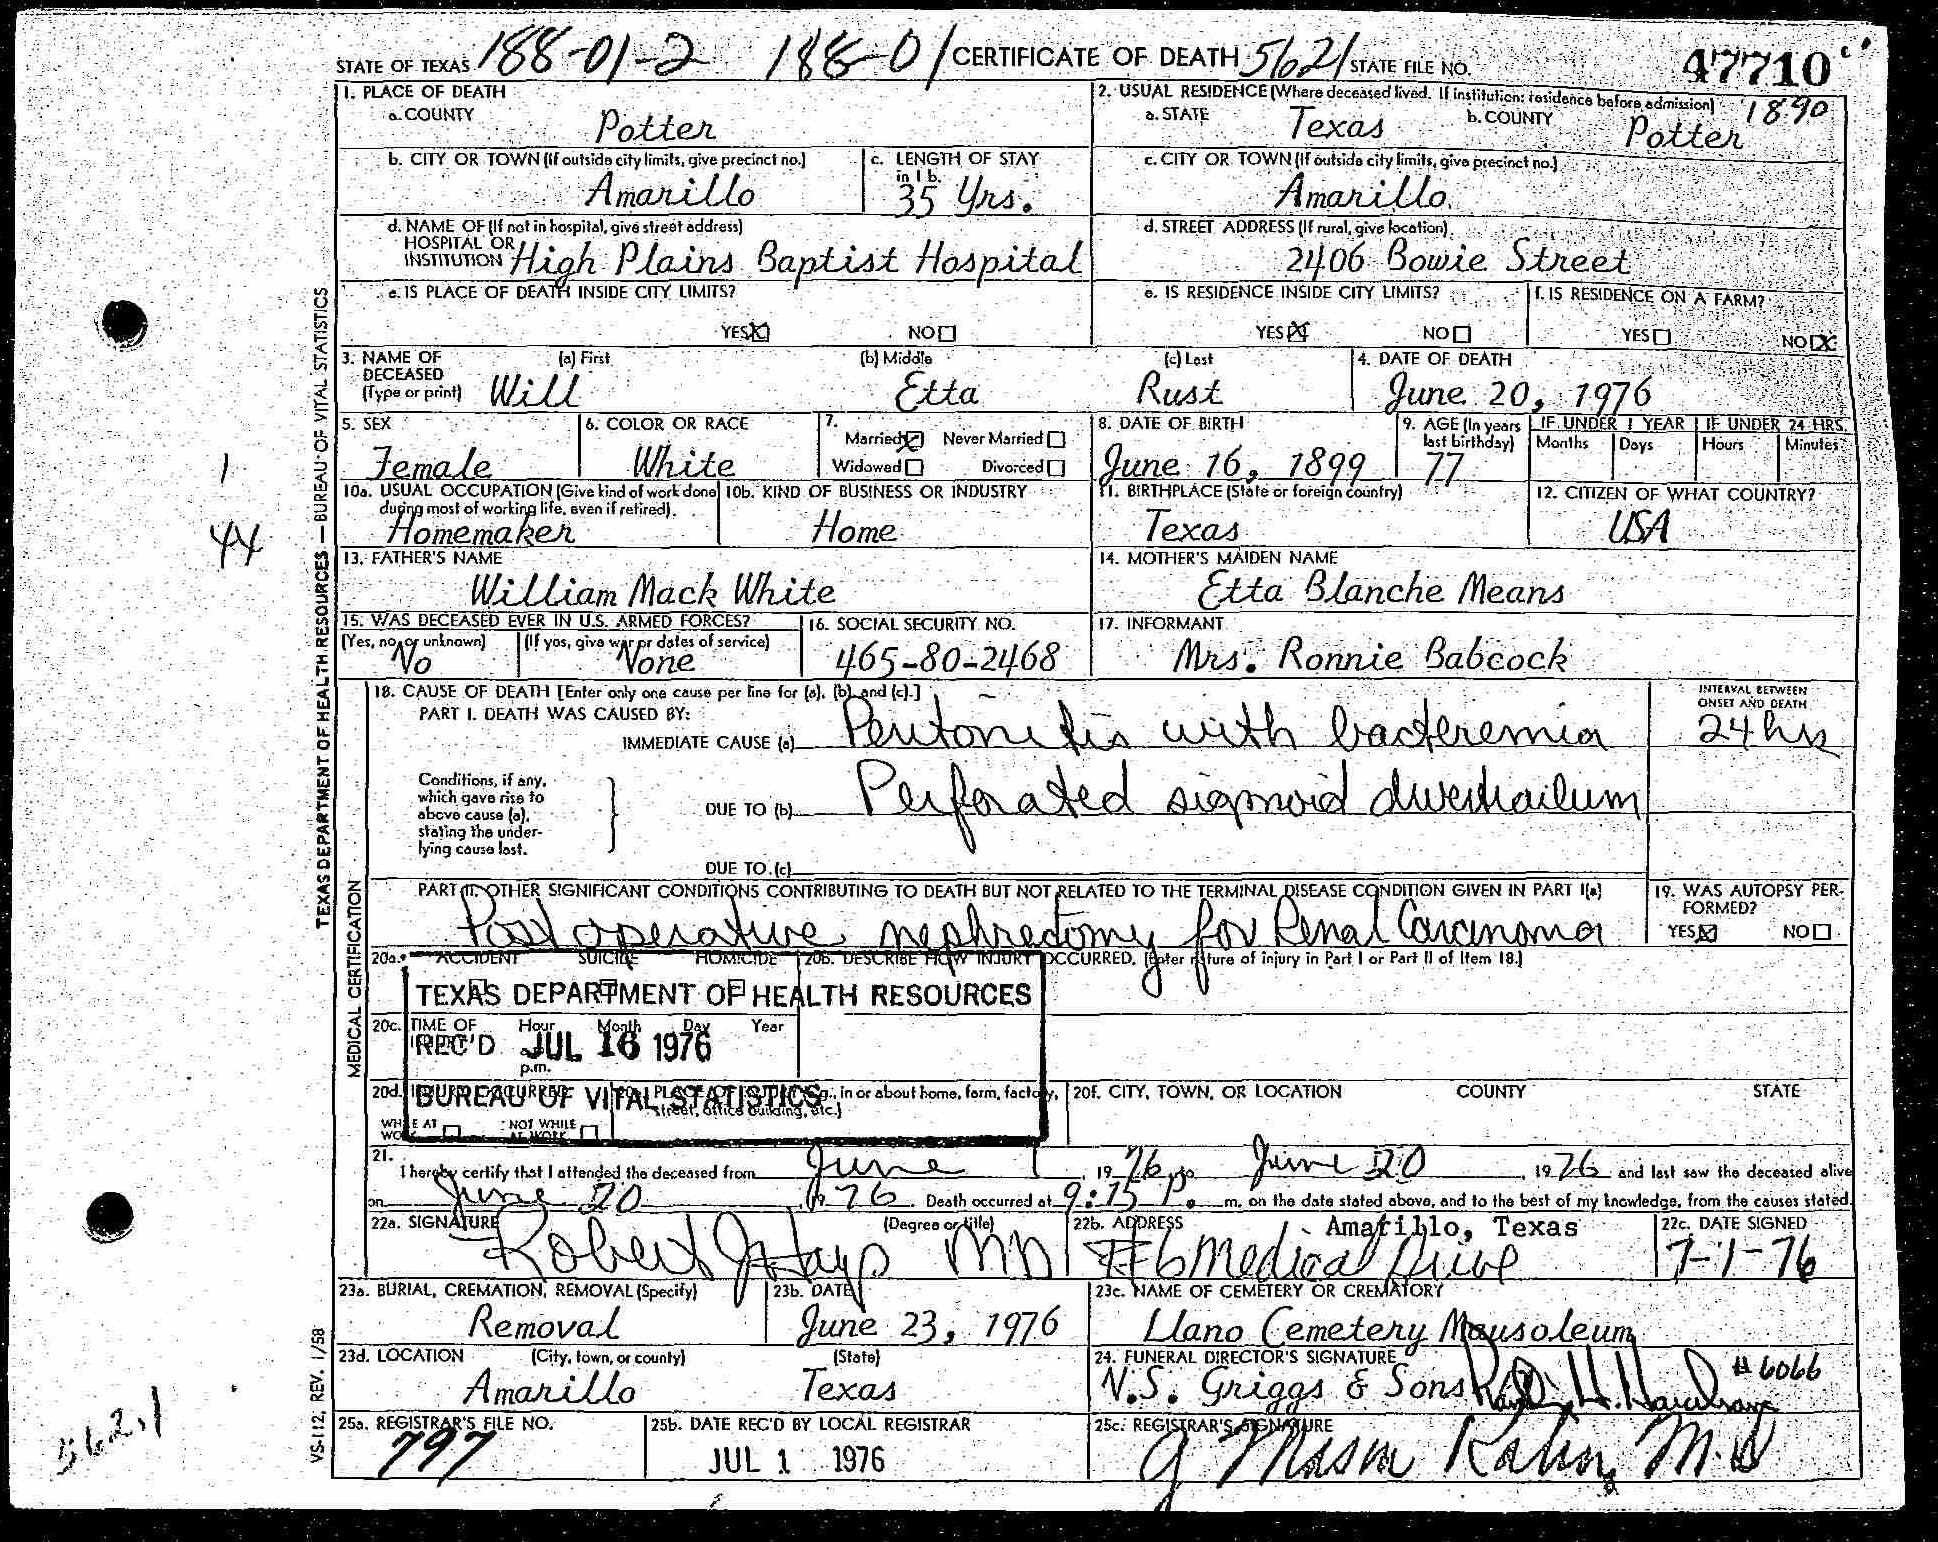 STATE OF TEXAS 188-01-2 188-0 / CERTIFICATE OF DEATH 5621 STATE FILE NO. 47710
1. PLACE OF DEATH
a. COUNTY Potter
2. USUAL RESIDENCE (Where deceased lived. If institution: residence before admission) 1890
a. STATE Texas b. COUNTY Potter
b. CITY OR TOWN (If outside city limits, give precinct no.) Amarillo
c. LENGTH OF STAY in 1b. 35 Yrs.
c. CITY OR TOWN (If outside city limits, give precinct no.) Amarillo
d. NAME OF (If not in hospital, give street address)
HOSPITAL OR
INSTITUTION High Plains Baptist Hospital
d. STREET ADDRESS (If rural, give location)
2406 Bowie Street
e. IS PLACE OF DEATH INSIDE CITY LIMITS?
YES NO
e. IS RESIDENCE INSIDE CITY LIMITS?
YES NO
f. IS RESIDENCE ON A FARM?
YES NO
3. NAME OF DECEASED (Type or print)
(a) First (b) Middle (c) Last
Will Etta Rust
4. DATE OF DEATH
June 20, 1976
5. SEX
Female
6. COLOR OR RACE
White
7.
Married Never Married
Widowed Divorced
8. DATE OF BIRTH
June 16, 1899
9. AGE (In years last birthday)
77
IF UNDER 1 YEAR
Months Days
IF UNDER 24 HRS.
Hours Minutes
10a. USUAL OCCUPATION (Give kind of work done during most of working life, even if retired).
Homemaker
10b. KIND OF BUSINESS OR INDUSTRY
Home
11. BIRTHPLACE (State or foreign country)
Texas
12. CITIZEN OF WHAT COUNTRY?
USA
13. FATHER'S NAME
William Mack White
14. MOTHER'S MAIDEN NAME
Etta Blanche Means
15. WAS DECEASED EVER IN U.S. ARMED FORCES?
(Yes, no, or unknown) (If yes, give war or dates of service)
No None
16. SOCIAL SECURITY NO.
465-80-2468
17. INFORMANT
Mrs. Ronnie Babcock
18. CAUSE OF DEATH [Enter only one cause per line for (a), (b), and (c).]
PART I. DEATH WAS CAUSED BY:
IMMEDIATE CAUSE (a) Peritonitis with bacteremia
INTERVAL BETWEEN
ONSET AND DEATH
24 hrs
Conditions, if any,
which gave rise to
above cause (a),
stating the under-
lying cause last.
DUE TO (b) Perforated sigmoid diverticulum
DUE TO (c)
PART II. OTHER SIGNIFICANT CONDITIONS CONTRIBUTING TO DEATH BUT NOT RELATED TO THE TERMINAL DISEASE CONDITION GIVEN IN PART I(a)
Post operative nephrectomy for Renal Carcinoma
19. WAS AUTOPSY PER-
FORMED?
YES NO
20a. ACCIDENT SUICIDE HOMICIDE
20b. DESCRIBE HOW INJURY OCCURRED. (Enter nature of injury in Part I or Part II of Item 18.)
TEXAS DEPARTMENT OF HEALTH RESOURCES
20c. TIME OF Hour Month Day Year
REC'D JUL 16 1976
p.m.
BUREAU OF VITAL STATISTICS
20d. in or about home, farm, factory, street, office building, etc.)
WHILE AT WORK NOT WHILE AT WORK
20f. CITY, TOWN, OR LOCATION COUNTY STATE
21.
I hereby certify that I attended the deceased from June 1, 1976 to June 20, 1976 and last saw the deceased alive
on June 20 1976 Death occurred at 9:15 P. m. on the date stated above, and to the best of my knowledge, from the causes stated.
22a. SIGNATURE (Degree or title)
Robert J Hays MD
22b. ADDRESS Amarillo, Texas
#6 Medical Drive
22c. DATE SIGNED
7-1-76
23a. BURIAL, CREMATION, REMOVAL (Specify)
Removal
23b. DATE
June 23, 1976
23c. NAME OF CEMETERY OR CREMATORY
Llano Cemetery Mausoleum
23d. LOCATION (City, town, or county) (State)
Amarillo Texas
24. FUNERAL DIRECTOR'S SIGNATURE
N.S. Griggs & Sons #6066
25a. REGISTRAR'S FILE NO.
797
25b. DATE REC'D BY LOCAL REGISTRAR
JUL 1 1976
25c. REGISTRAR'S SIGNATURE
J Mason Kahn, M.D
TEXAS DEPARTMENT OF HEALTH RESOURCES — BUREAU OF VITAL STATISTICS
MEDICAL CERTIFICATION
VS-112, REV. 1/58
1
44
562.1